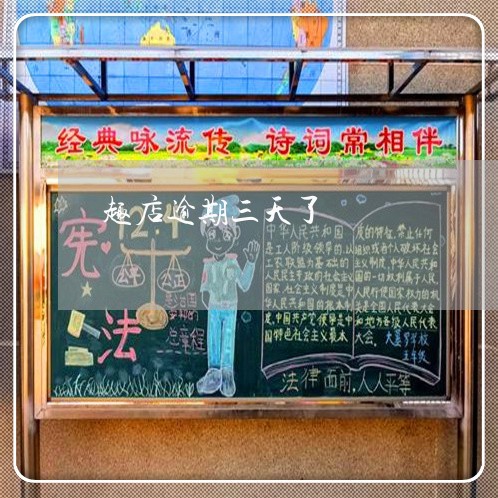 经典咏流传 诗词常相伴
趣店逾期三天了
宪法
12.4
公平
公正
总章程
中华人民共和国
是工人阶级领导的，以
工农联盟为基础的
人民民主专政的社会主义
国家，社会主义制度是中
华人民共和国的根本制
度，中国共产党领导是中
国特色社会主义最本
质的特征，禁止任何
组织或者个人破坏社会
主义制度，中华人民共和
国的一切权利属于人民，
人民行使国家权力的机
关是全国人民代表大会
和地方各级人民代表
大会。
五年级
法律面前，人人平等